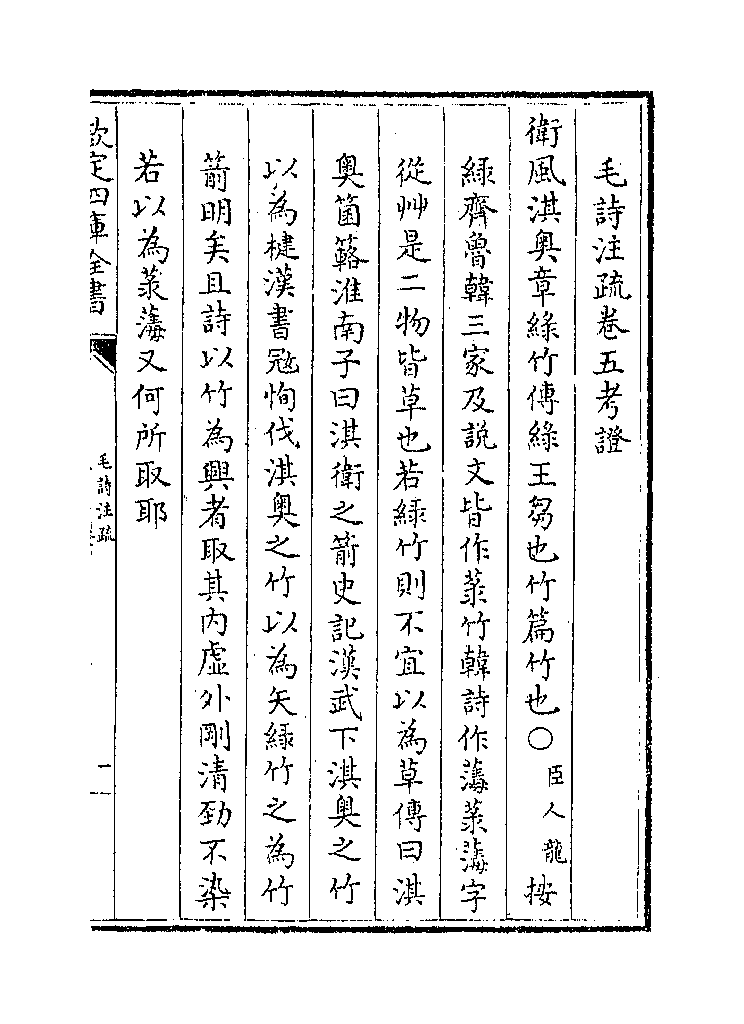 毛詩注疏卷五考證
衛風淇奥章綠竹傳綠王芻也竹篇竹也○臣人龍按
綠齊魯韓三家及説文皆作菉竹韓詩作薄菉薄字
從艸是二物皆草也若綠竹則不宜以為草傳曰淇
奥箘簵淮南子曰淇衛之箭史記漢武下淇奥之竹
以為楗漢書冦恂伐淇奥之竹以為矢綠竹之為竹
箭明矣且詩以竹為興者取其内虚外剛清勁不染
若以為菉薄又何所取耶
欽定四庫全書
毛詩注疏
一